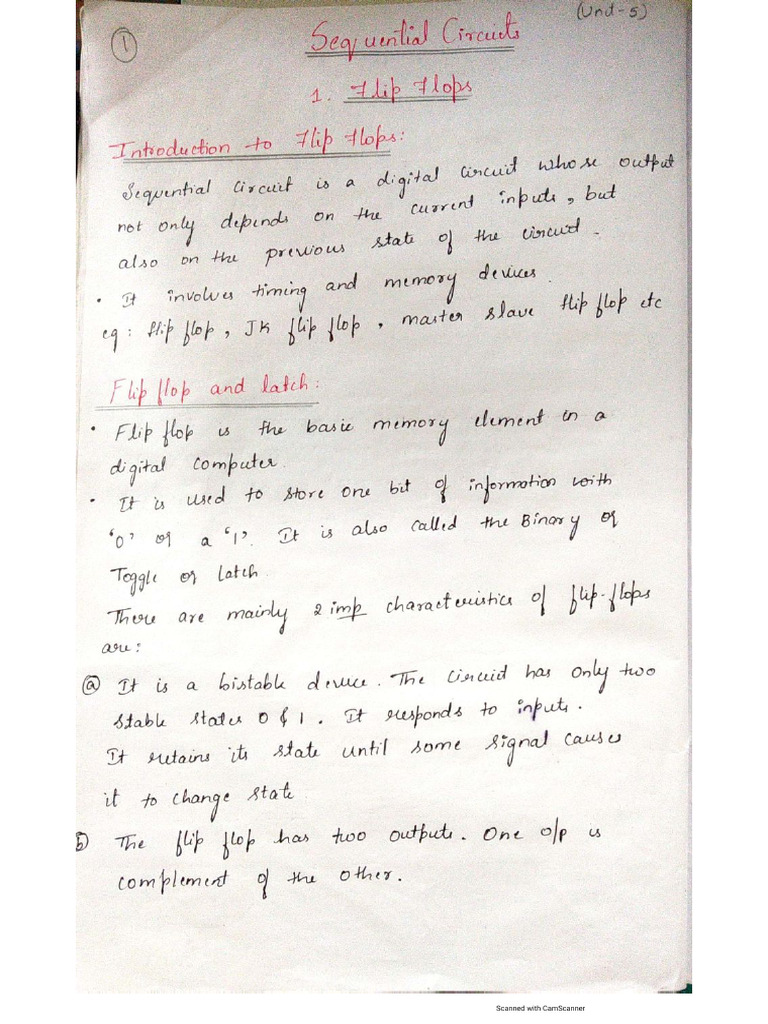 (Unit-5)
1
Sequential Circuits
1. Flip Flops
Introduction to Flip Flops:
Sequential Circuit is a digital Circuit whose output
not only depends on the current inputs, but
also on the previous state of the circuit.
• It involves timing and memory devices.
eg: flip flop, JK flip flop, master slave flip flop etc
Flip flop and latch:
• Flip flop is the basic memory element in a
digital computer.
• It is used to store one bit of information with
'0' or a '1'. It is also called the Binary or
Toggle or latch.
There are mainly 2 imp characteristics of flip-flops
are:
a It is a bistable device. The circuit has only two
stable states 0 & 1. It responds to inputs.
It retains its state until some signal causes
it to change state
b The flip flop has two outputs. One o/p is
complement of the other.
Scanned with CamScanner